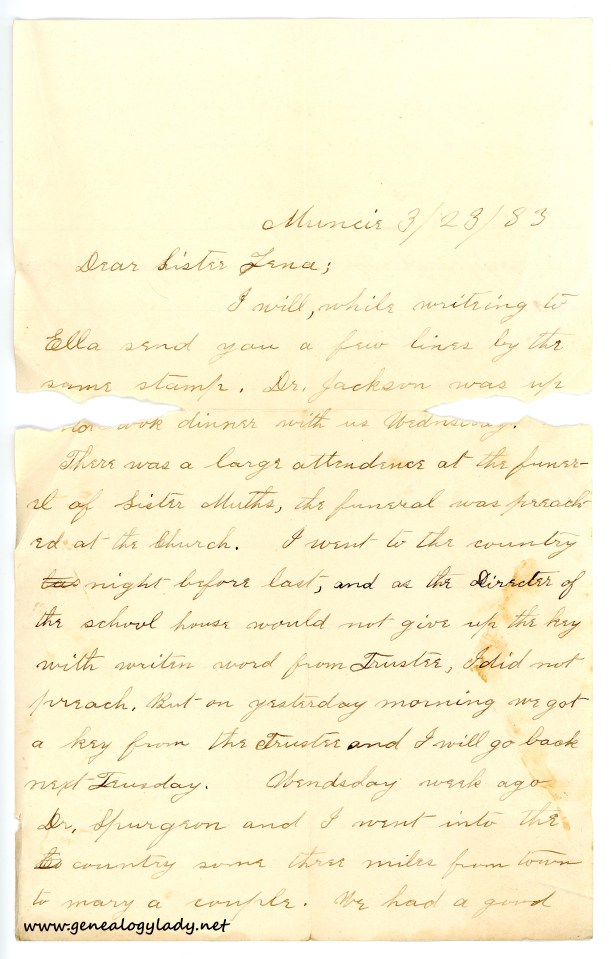 Muncie 3/23/83
Dear Sister Lena;
I will, while writeing to
Ella send you a few lines by the
same stamp. Dr. Jackson was up
dinner with us Wednsday.
There was a large attendence at the funer-
el of Sister Muths, the funeral was preach-
ed at the Church. I went to the country
night before last, and as the Directer of
the school house would not give up the key
with writen word from Trustee, I did not
preach. But on yesterday morning we got
a key from the Trustee and I will go back
next Teusday. Wendsday week ago
Dr. Spurgeon and I went into the
country some three miles from town
to mary a couple. We had a good
www.genealogylady.net